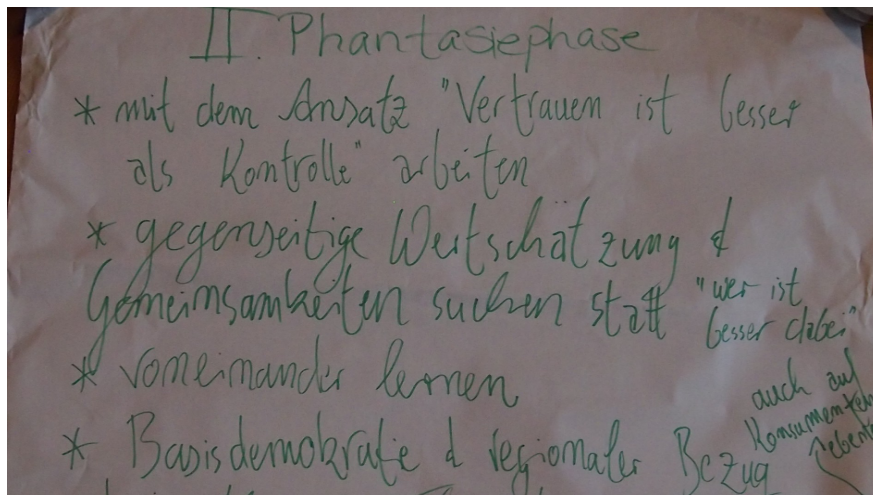 II. Phantasiephase
* mit dem Ansatz "Vertrauen ist besser
als Kontrolle" arbeiten
* gegenseitige Wertschätzung &
Gemeinsamkeiten suchen statt "wer ist
besser dabei"
* voneinander lernen
* Basisdemokratie & regionaler Bezug
auch auf
Konsumenten